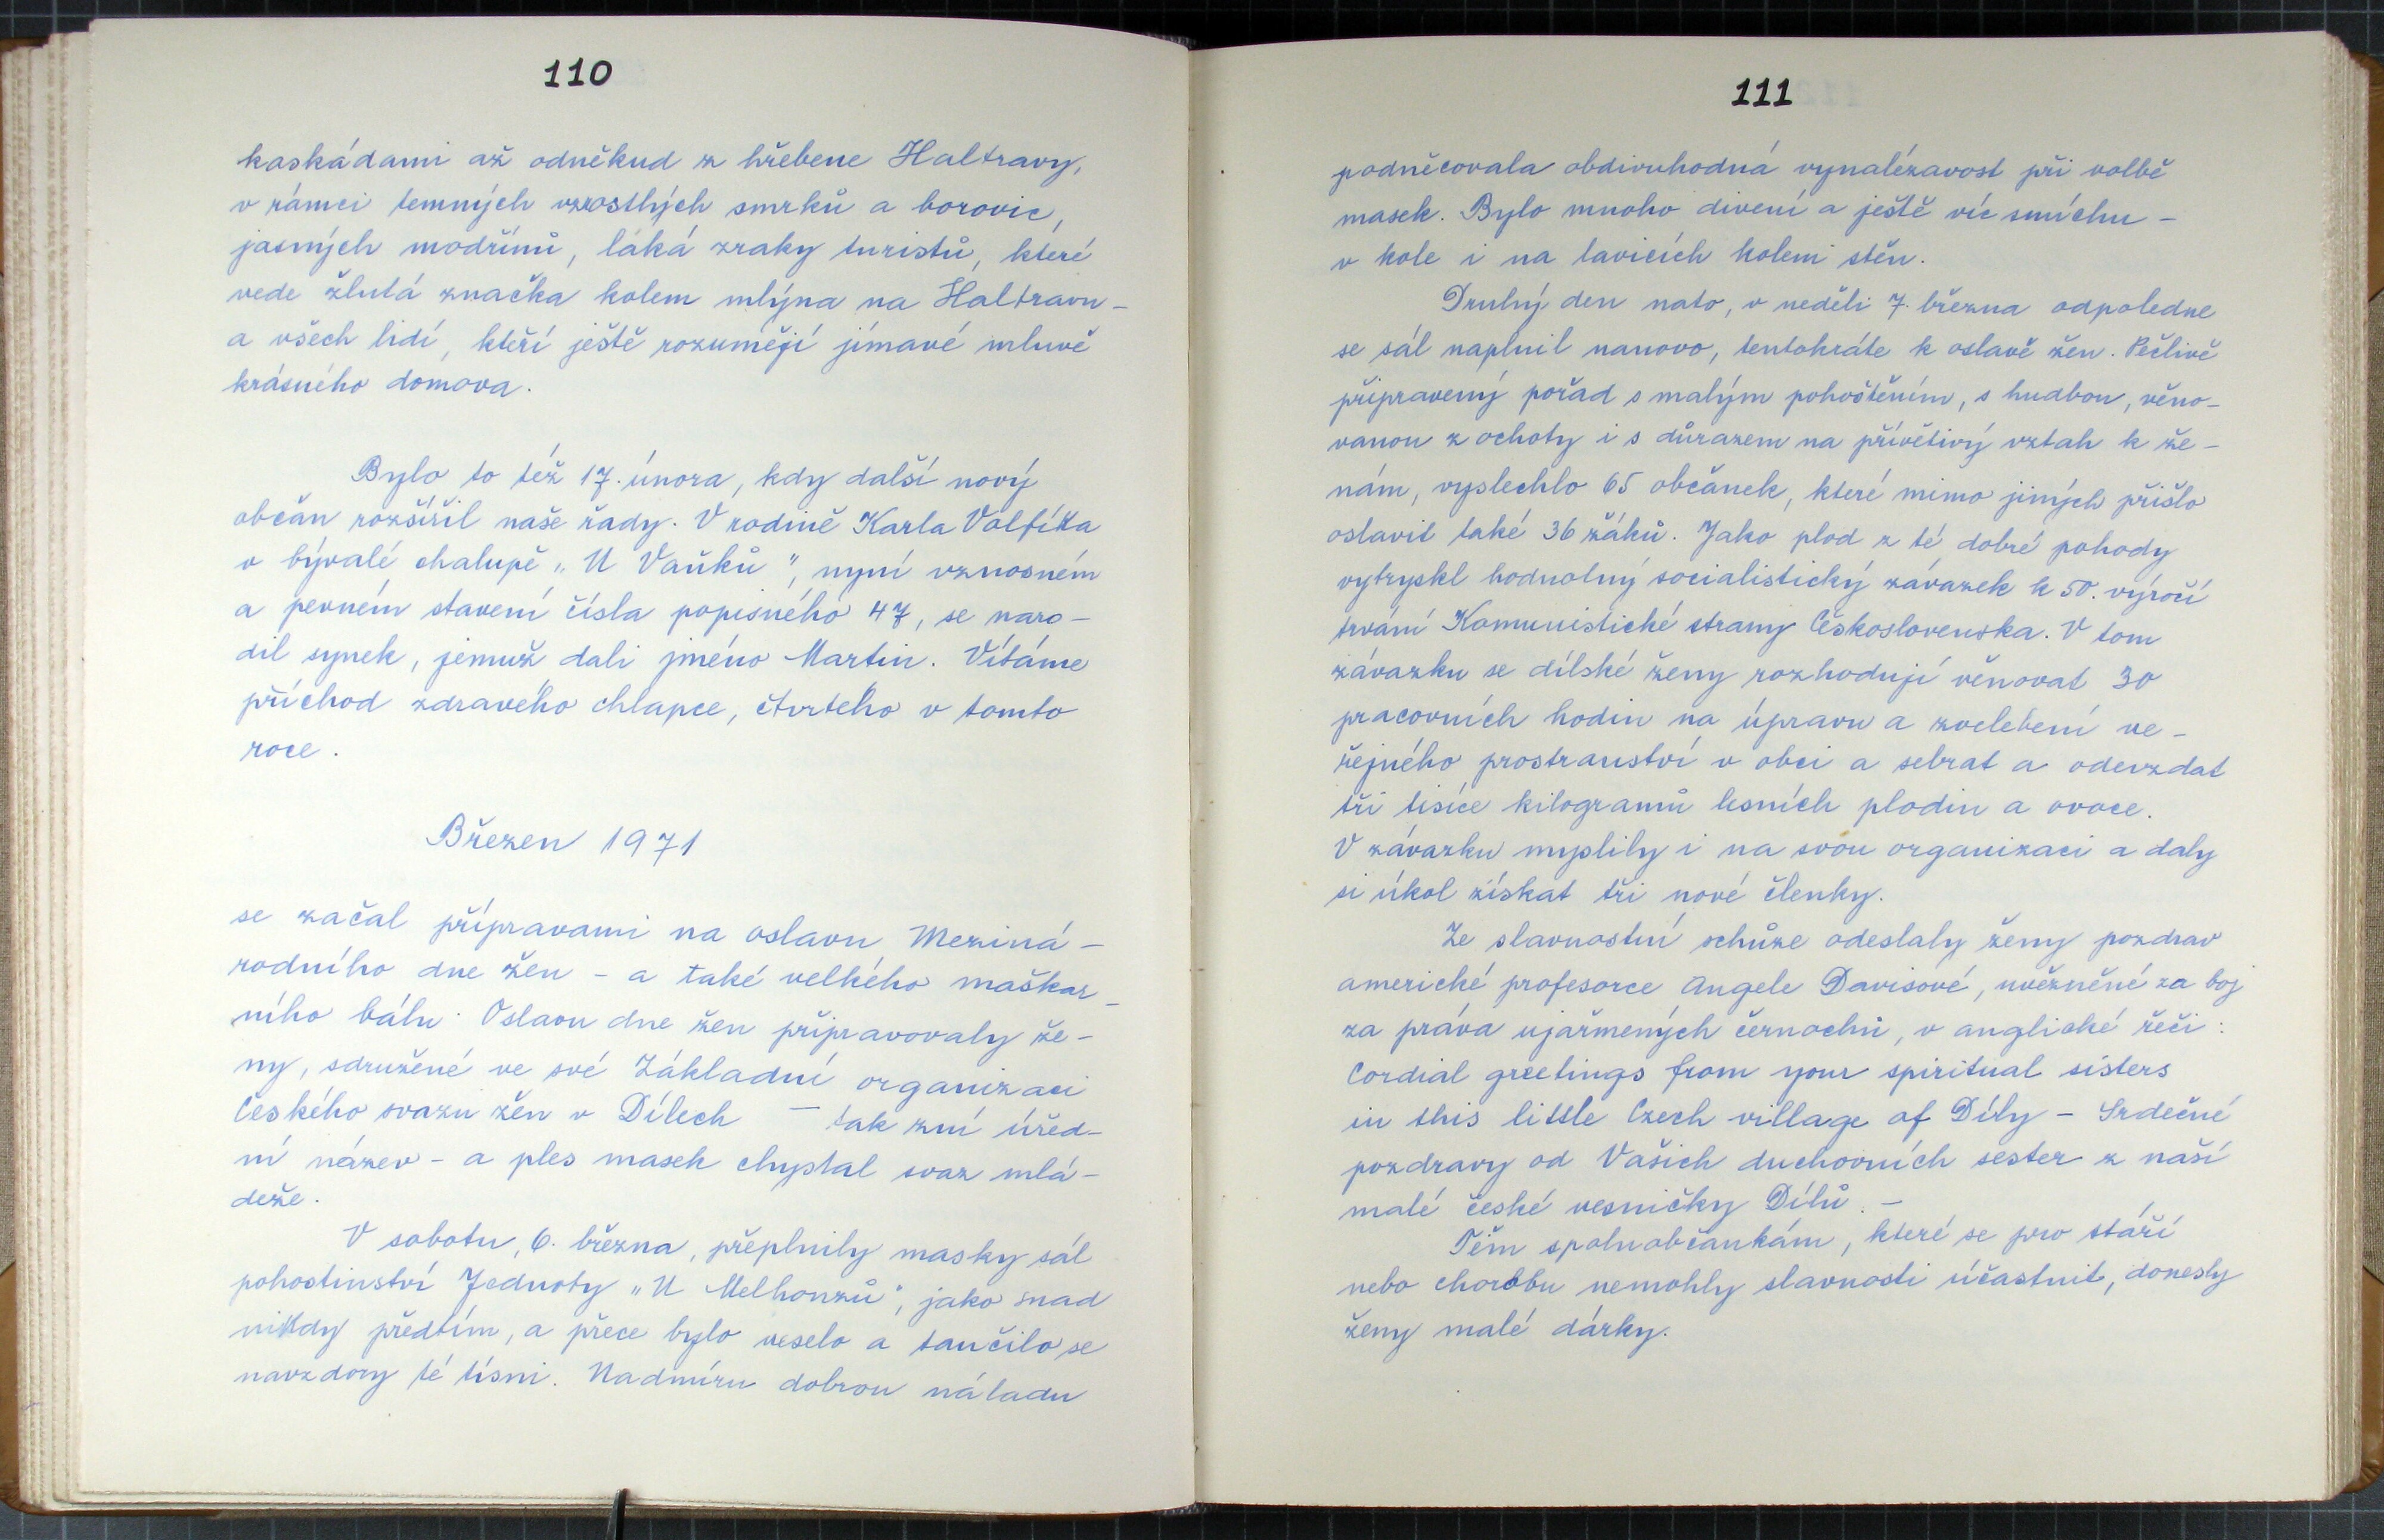 110
kaskádami až odněkud z hřebene Haltravy,
v rámci temných vzrostlých smrků a borovic,
jasných modřínů, láká zraky turistů, které
vede žlutá značka kolem mlýna na Haltravu -
a všech lidí, kteří ještě rozumějí jímavé mluvě
krásného domova.
Bylo to též 17. února, kdy další nový
občan rozšířil naše řady. V rodině Karla Volfíka
v bývalé chalupě „U Vaňků", nyní vznosném
a pevném stavení čísla popisného 47, se naro-
dil synek, jemuž dali jméno Martin. Vítáme
příchod zdravého chlapce, čtvrtého v tomto
roce.
Březen 1971
se začal přípravami na oslavu Meziná-
rodního dne žen - a také velkého maškar-
ního bálu. Oslavu dne žen připravovaly že-
ny, sdružené ve své Základní organizaci
Českého svazu žen v Dílech - tak zní úřed-
ní název - a ples masek chystal svaz mlá-
deže.
V sobotu, 6. března, přeplnily masky sál
pohostinství Jednoty „U Melhonzů", jako snad
nikdy předtím, a přece bylo veselo a tančilo se
navzdory té tísni. Nadmíru dobrou náladu
111
podněcovala obdivuhodná vynalézavost při volbě
masek. Bylo mnoho divení a ještě víc smíchu -
v kole i na lavicích kolem stěn.
Druhý den nato, v neděli 7. března odpoledne
se sál naplnil nanovo, tentokráte k oslavě žen. Pečlivě
připravený pořad s malým pohoštěním, s hudbou, věno-
vanou z ochoty i s důrazem na přívětivý vztah k že-
nám, vyslechlo 65 občanek, které mimo jiných přišlo
oslavit také 36 žáků. Jako plod z té dobré pohody
vytryskl hodnotný socialistický závazek k 50. výročí
trvání Komunistické strany Československa. V tom
závazku se dílské ženy rozhodují věnovat 30
pracovních hodin na úpravu a zvelebení ve-
řejného prostranství v obci a sebrat a odevzdat
tři tisíce kilogramů lesních plodin a ovoce.
V závazku myslily i na svou organizaci a daly
si úkol získat tři nové členky.
Ze slavnostní schůze odeslaly ženy pozdrav
americké profesorce Angele Davisové, uvězněné za boj
za práva ujařmených černochů, v anglické řeči:
Cordial greetings from your spiritual sisters
in this little Czech village of Díly - Srdečné
pozdravy od Vašich duchovních sester z naší
malé české vesničky Dílů. -
Těm spoluobčankám, které se pro stáří
nebo chorobu nemohly slavnosti účastnit, donesly
ženy malé dárky.